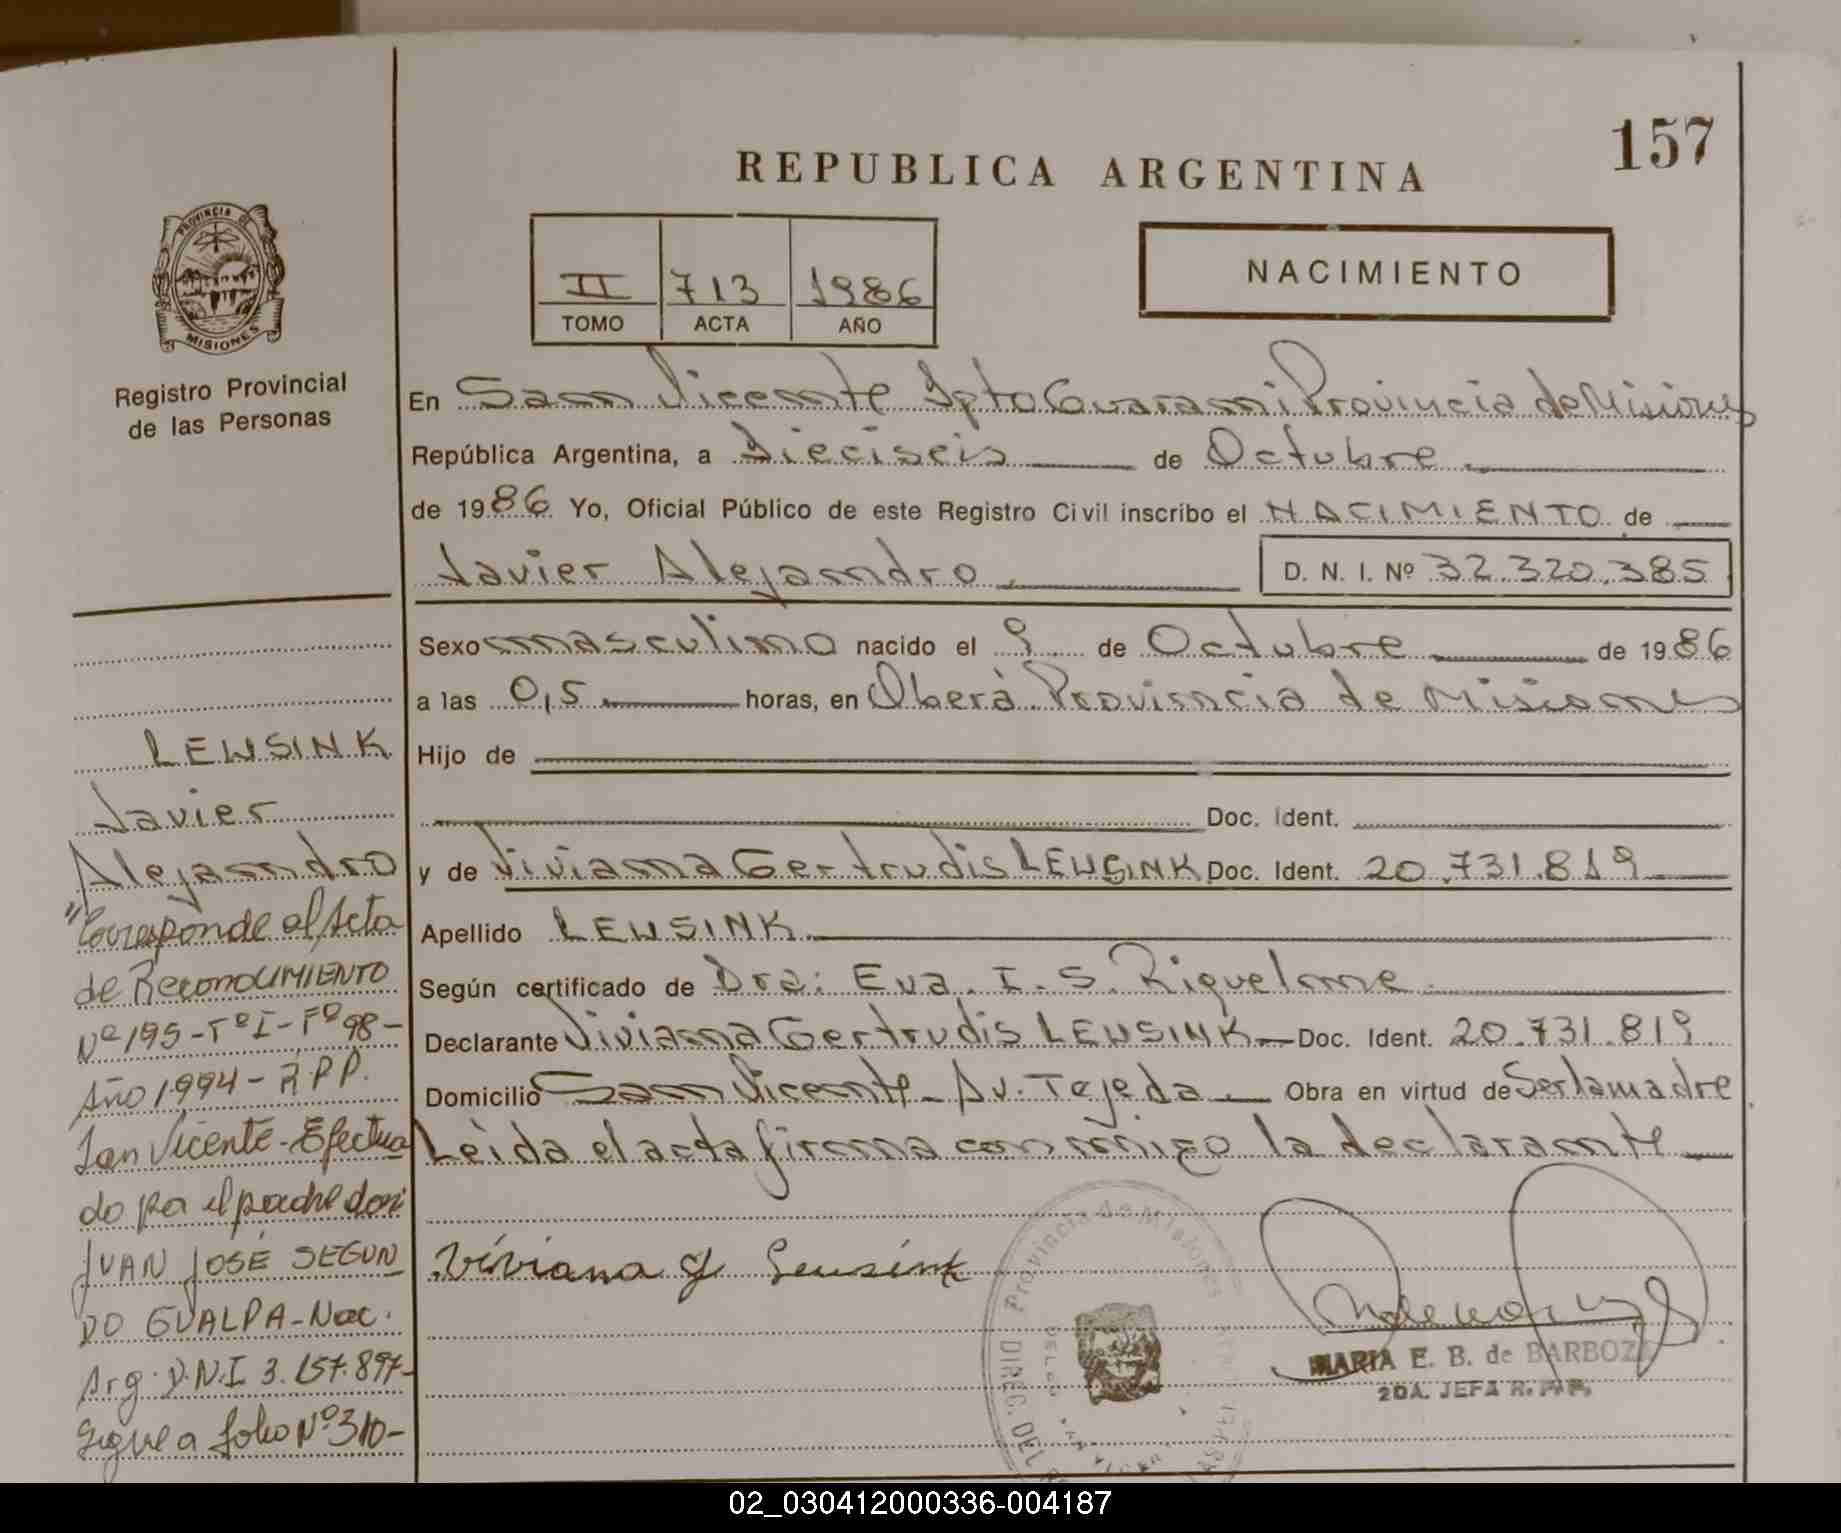 157
REPUBLICA ARGENTINA
NACIMIENTO
II 713 1986
TOMO ACTA AÑO
PROVINCIA DE
MISIONES
Registro Provincial
de las Personas
En San Vicente Dpto Guarani Provincia de Misiones
República Argentina, a Dieciseis de Octubre
de 1986 Yo, Oficial Público de este Registro Civil inscribo el NACIMIENTO de
Javier Alejandro D. N. I. Nº 32.320.385
Sexo masculino nacido el 9 de Octubre de 1986
a las 0,5 horas, en Oberá Provincia de Misiones
Hijo de
Doc. Ident.
y de Viviana Gertrudis LEUSINK Doc. Ident. 20.731.819
Apellido LEUSINK
Según certificado de Dra: Eva. I. S. Riquelme
Declarante Viviana Gertrudis LEUSINK Doc. Ident. 20.731.819
Domicilio San Vicente - Av. Tejeda Obra en virtud de Ser la madre
Leida el acta firma conmigo la declarante
Viviana G Leusink
Provincia de Misiones
DIREC. DEL
MARIA E. B. de BARBOZA
2DA. JEFA R. P. P.
LEUSINK
Javier
Alejandro
"Corresponde al Acta
de Reconocimiento
Nº 195 - Tº I - Fº 98 -
Año 1994 - R.P.P.
San Vicente - Efectua
do por el padre don
JUAN JOSÉ SEGUN
DO GUALPA - Nac.
Arg. D.N.I 3.157.897-
Sigue a folio Nº 310-
02_030412000336-004187